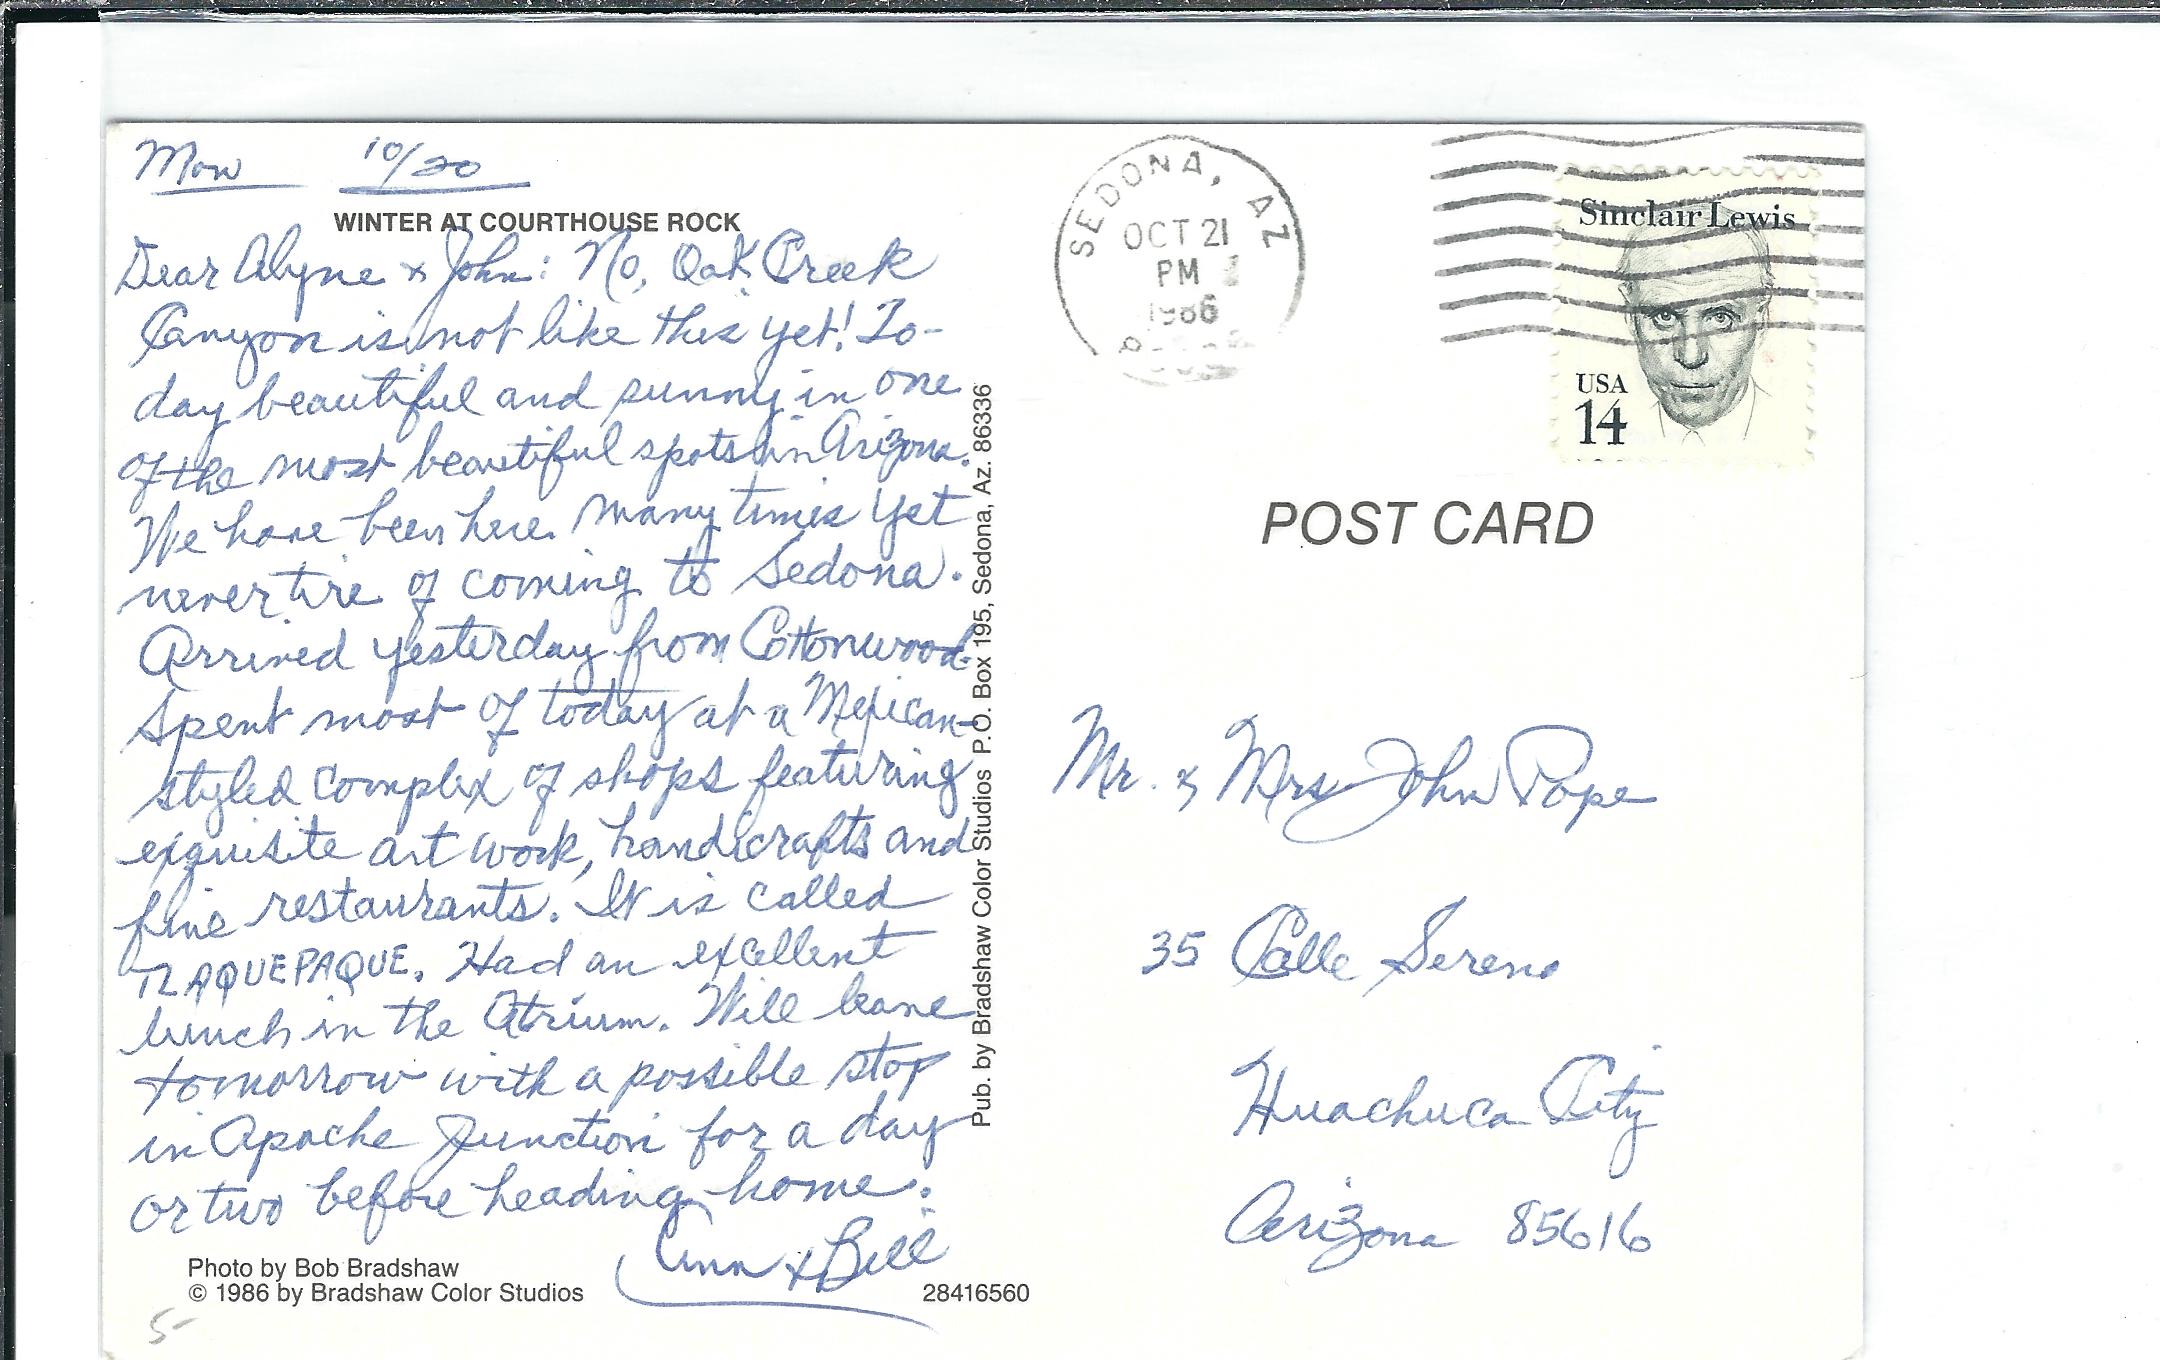 Mon 10/20
WINTER AT COURTHOUSE ROCK
Dear Alyne & John: No, Oak Creek
Canyon is not like this yet! To-
day beautiful and sunny in one
of the most beautiful spots in Arizona.
We have been here many times yet
never tire of coming to Sedona.
Arrived yesterday from Cottonwood.
Spent most of today at a Mexican-
styled complex of shops featuring
exquisite art work, handicrafts and
fine restaurants. It is called
TLAQUEPAQUE. Had an excellent
lunch in the Atrium. Will leave
tomorrow with a possible stop
in Apache Junction for a day
or two before heading home.
Ann & Bill
Photo by Bob Bradshaw
© 1986 by Bradshaw Color Studios
28416560
5-
Pub. by Bradshaw Color Studios P.O. Box 195, Sedona, Az. 86336
SEDONA, AZ
OCT 21
PM
1986
Sinclair Lewis
USA
14
POST CARD
Mr. & Mrs John Pope
35 Calle Sereno
Huachuca City
Arizona 85616